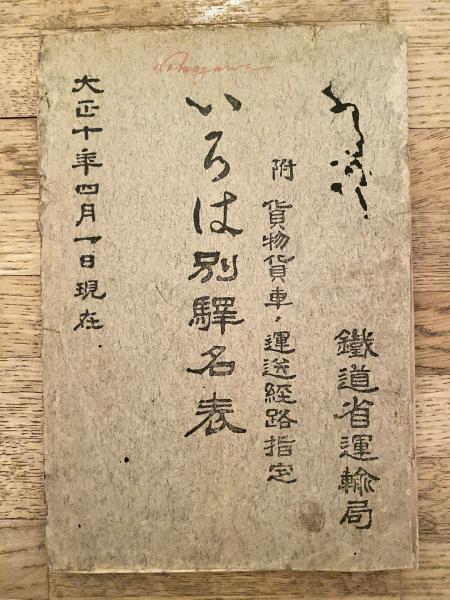 鐵道省運輸局
附 貨物貨車、運送経路指定
いろは別驛名表
大正十年四月一日現在